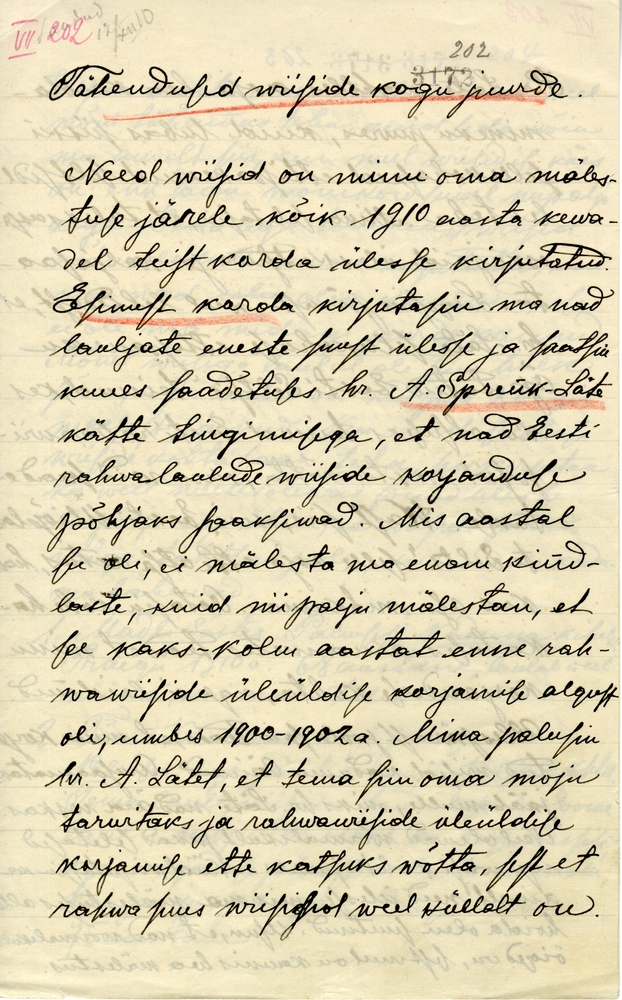 VII 202
202
3172
Tähendused wiiside kogu juurde.
Need wiisid on minu oma mäles-
tuse järele kõik 1910 aasta kewa-
del teist korda ülesse kirjutatud.
Esimest korda kirjutasin ma nad
lauljate eneste suust ülesse ja saatsin
kuues saadetuses hr. A. Spreük-Läte
kätte tingimisega, et nad Eesti
rahwalaulude wiiside korjanduse
põhjaks saaksiwad. Mis aastal
se oli, ei mälesta ma enam kind-
laste, kuid nii palju mälestan, et
se kaks-kolm aastat enne rah-
wawiiside üleüldise korjamise algust
oli, umbes 1900-1902 a. Mina palusin
hr. A. Lätet, et tema siin oma mõju
tarwitaks ja rahwawiiside üleüldise
korjamise ette katsuks wõtta, sest et
rahwa suus wiisisid weel küllalt on.